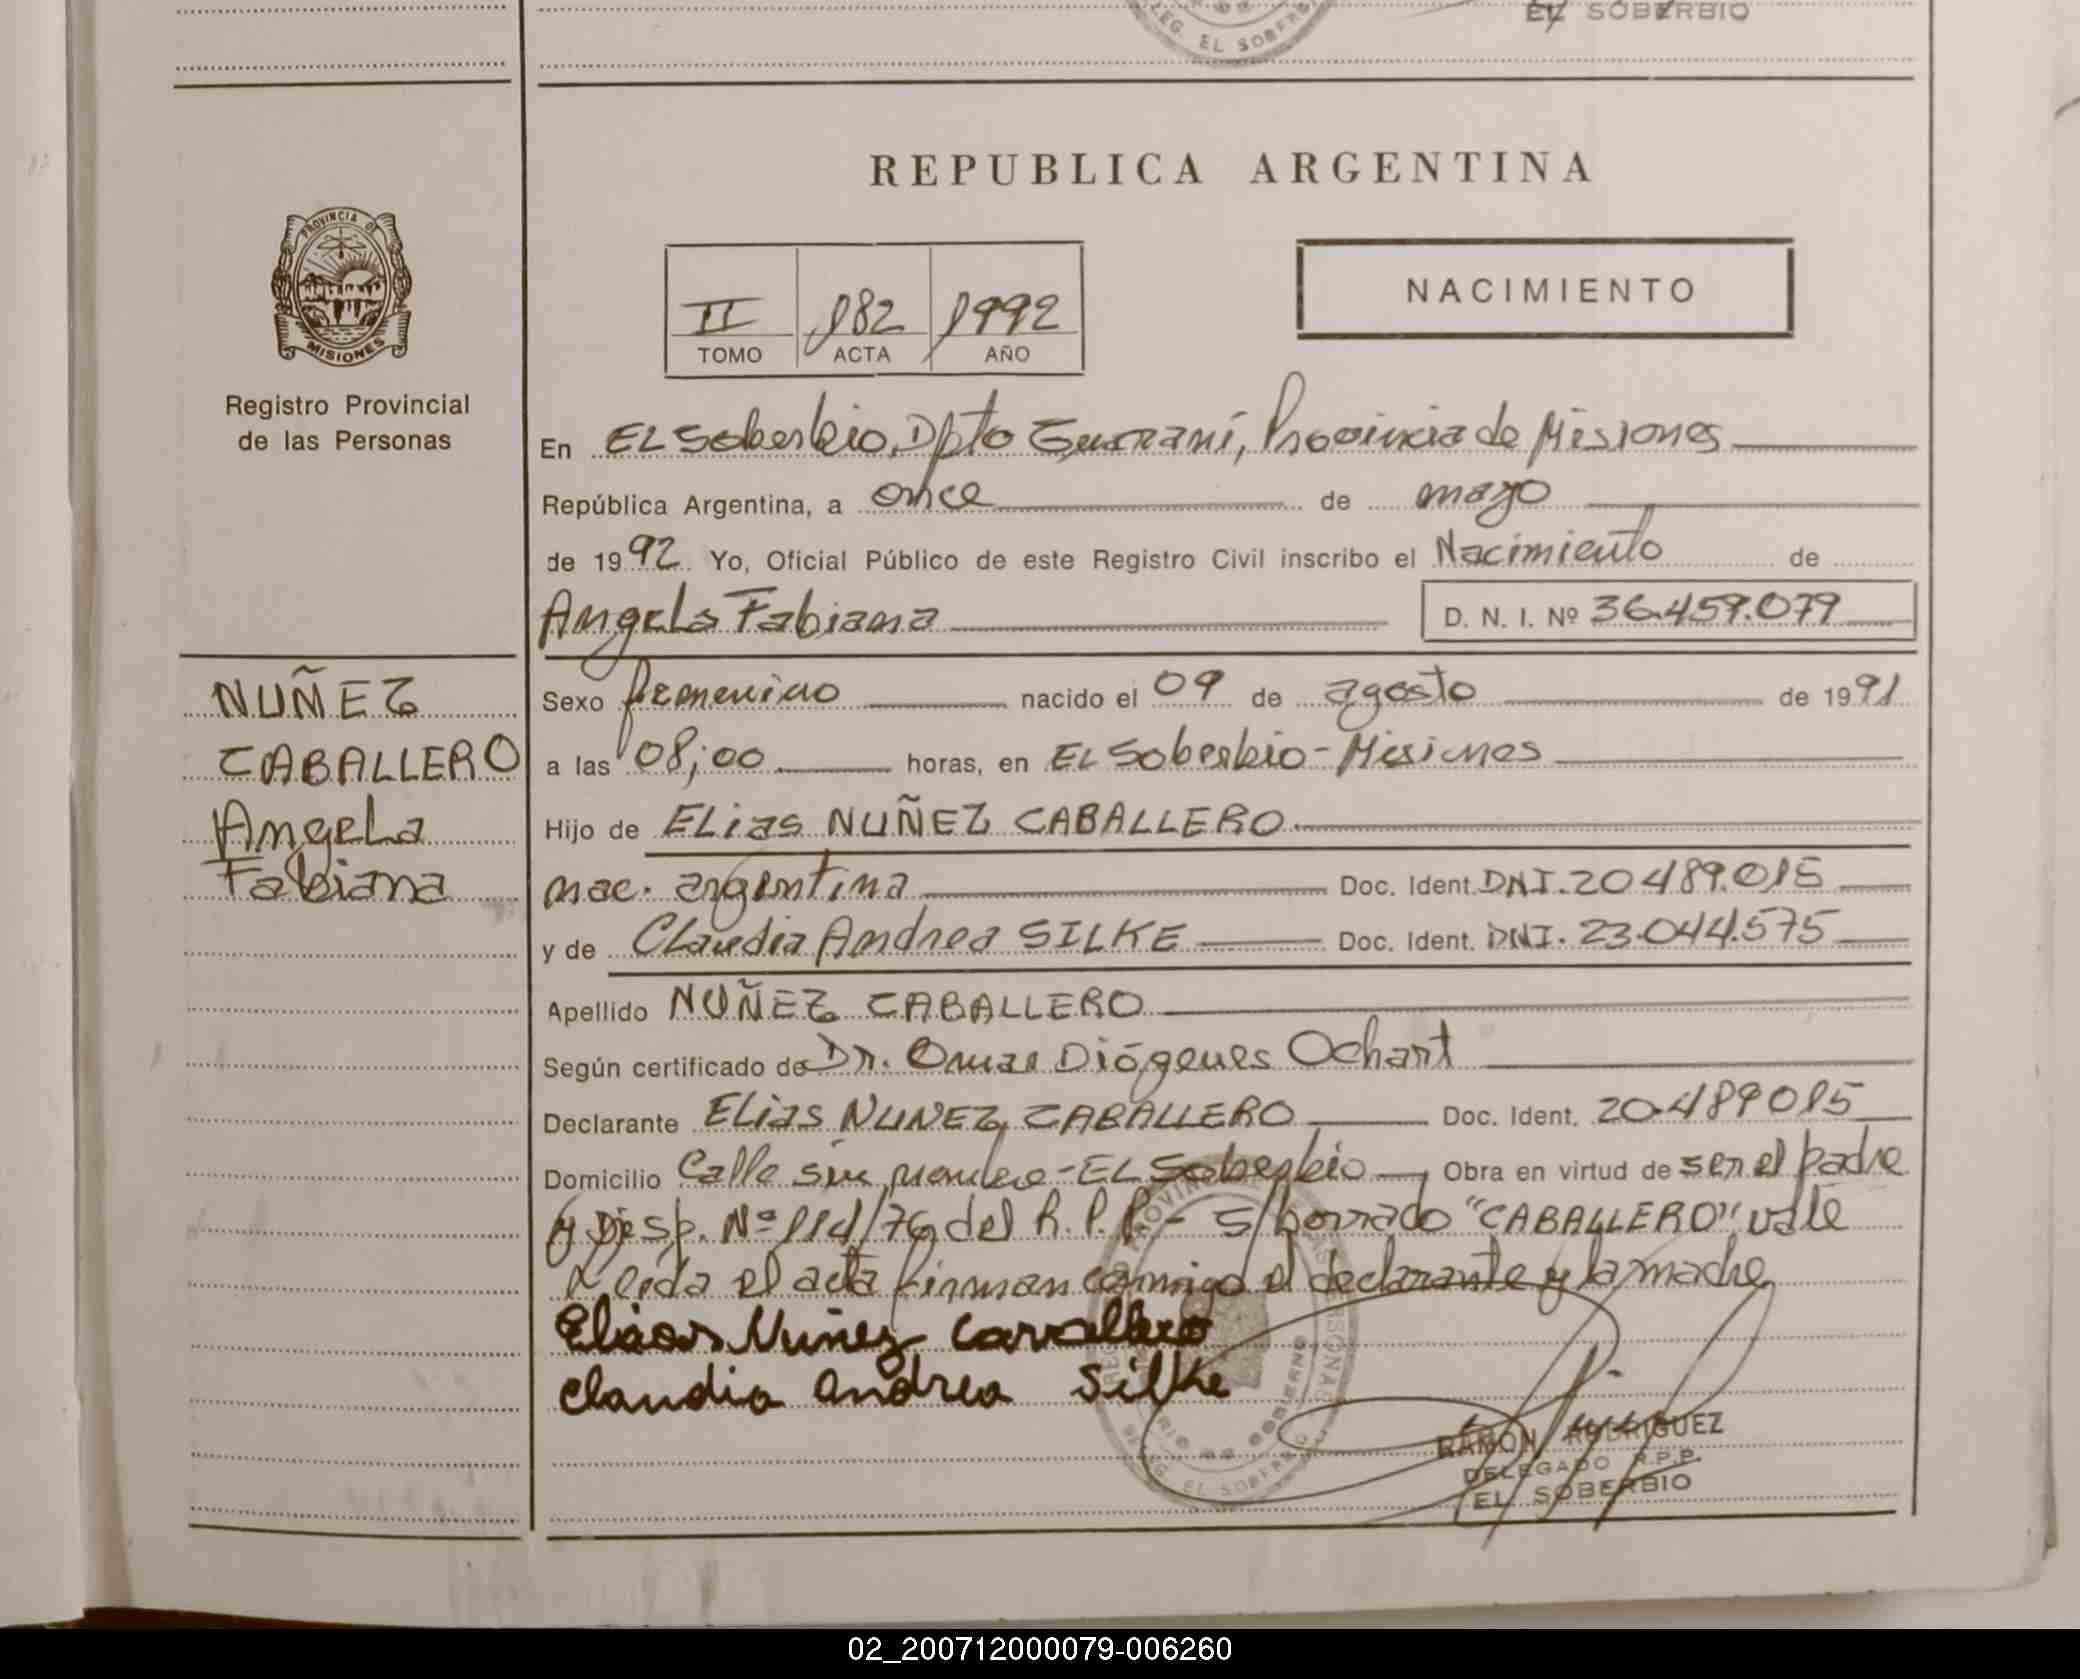 LEG. EL SOBERBIO
EL SOBERBIO
REPUBLICA ARGENTINA
PROVINCIA DE
MISIONES
Registro Provincial
de las Personas
II 182 1992
TOMO ACTA AÑO
NACIMIENTO
En EL Soberbio, Dpto Guaraní, Provincia de Misiones
República Argentina, a once de mayo
de 1992 Yo, Oficial Público de este Registro Civil inscribo el Nacimiento de
Angela Fabiana D. N. I. Nº 36.459.079
NUÑEZ
CABALLERO
Angela
Fabiana
Sexo femenino nacido el 09 de agosto de 1991
a las 08;00 horas, en EL Soberbio - Misiones
Hijo de ELias NUÑEZ CABALLERO
nac. argentina Doc. Ident. DNI. 20.489.015
y de Claudia Andrea SILKE Doc. Ident. DNI. 23.044.575
Apellido NUÑEZ CABALLERO
Según certificado de Dr. Omar Diógenes Ochart
Declarante ELias NUNEZ CABALLERO Doc. Ident. 20.489015
Domicilio Calle sin nombre - EL Soberbio Obra en virtud de ser el padre
y Disp. Nº 114/76 del R.P.P. - S/borrado "CABALLERO" vale
Leida el acta firman conmigo el declarante y la madre
Elias Nuñez Carvallero
Claudia Andrea Silke
RAMON RODRIGUEZ
DELEGADO R.P.P.
EL SOBERBIO
02_200712000079-006260